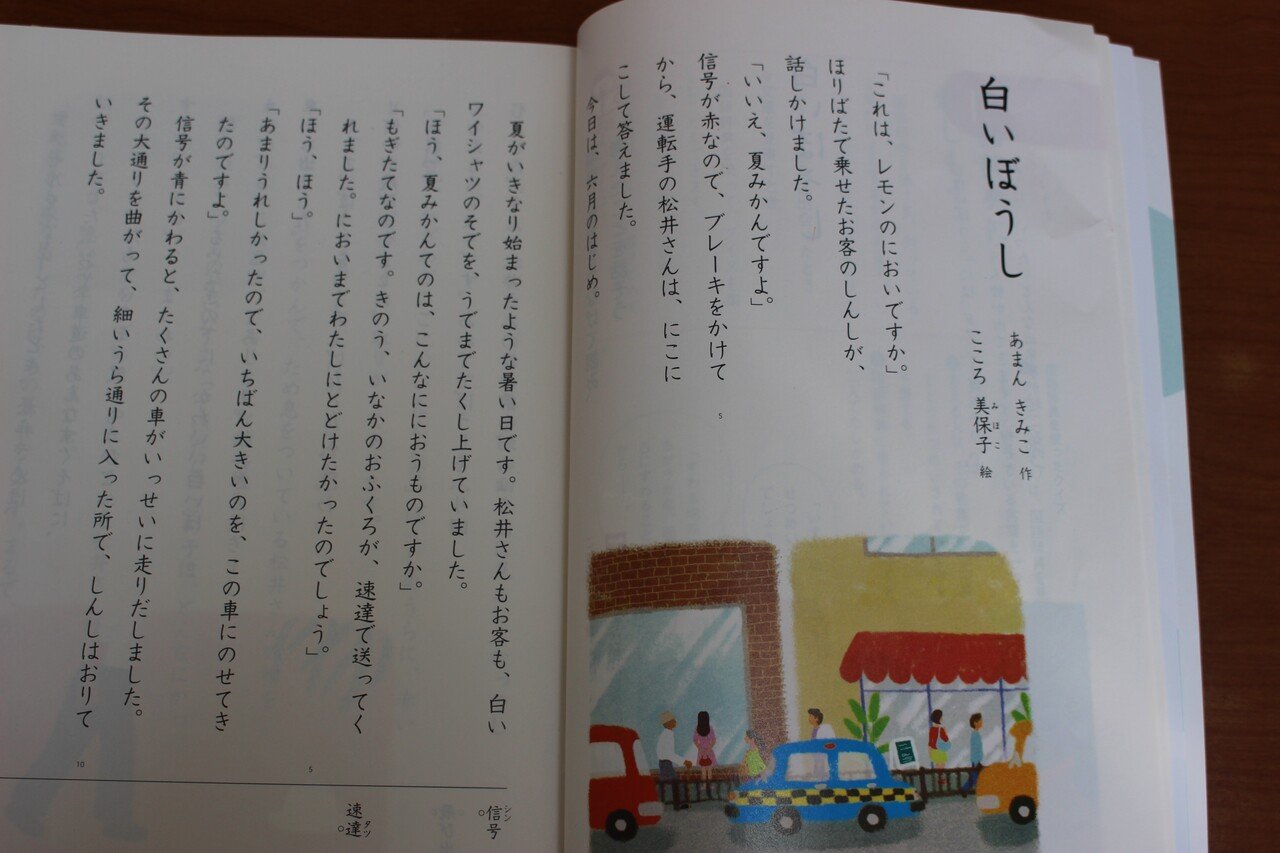 白いぼうし
あまん きみこ 作
こころ 美保子 絵
みほこ
「これは、レモンのにおいですか。」
ほりばたで乗せたお客のしんしが、
話しかけました。
「いいえ、夏みかんですよ。」
信号が赤なので、ブレーキをかけて
から、運転手の松井さんは、にこに
こして答えました。
今日は、六月のはじめ。
5
夏がいきなり始まったような暑い日です。松井さんもお客も、白い
ワイシャツのそでを、うでまでたくし上げていました。
「ほう、夏みかんてのは、こんなににおうものですか。」
「もぎたてなのです。きのう、いなかのおふくろが、速達で送ってく
れました。においまでわたしにとどけたかったのでしょう。」
「ほう、ほう。」
「あまりうれしかったので、いちばん大きいのを、この車にのせてき
たのですよ。」
信号が青にかわると、たくさんの車がいっせいに走りだしました。
その大通りを曲がって、細いうら通りに入った所で、しんしはおりて
いきました。
5
10
信号
シン
速達
タツ